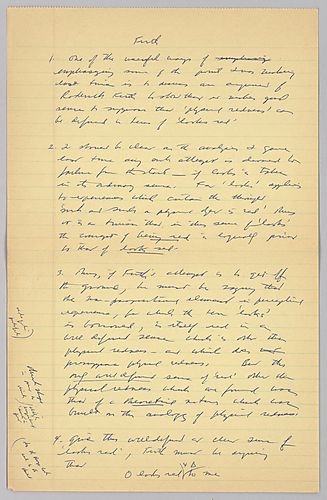 Firth
1. One of the useful ways of
emphasizing some of the points I was making
last time is to discuss an argument of
Roderick Firth to show that it makes good
sense to suppose that 'physical redness' can
be defined in terms of 'looks red'
2. It should be clear on the analysis I gave
last time any such attempt is doomed to
failure from the start — if looks is taken
in its ordinary sense. For 'looks' applies
to experiences which contain the thought
'such and such a physical object is red'. Thus
it is a truism that in this sense of 'looks'
the concept of being red is logically prior
to that of looks red.
3. Thus, if Firth's attempt is to get off
the ground, he must be saying that
the non-propositional element in perceptual
experience, for which the term 'looks'
is borrowed, is itself red in a
well defined sense which is other than
physical redness — and which does not
presuppose physical redness. But the
only well defined sense of 'red' other than
physical redness which we found was
that of a theoretical nature which was
modeled on the analogy of physical redness.
4. Given this well defined or clear sense of
'looks red', Firth must be arguing
that
O looks red to me